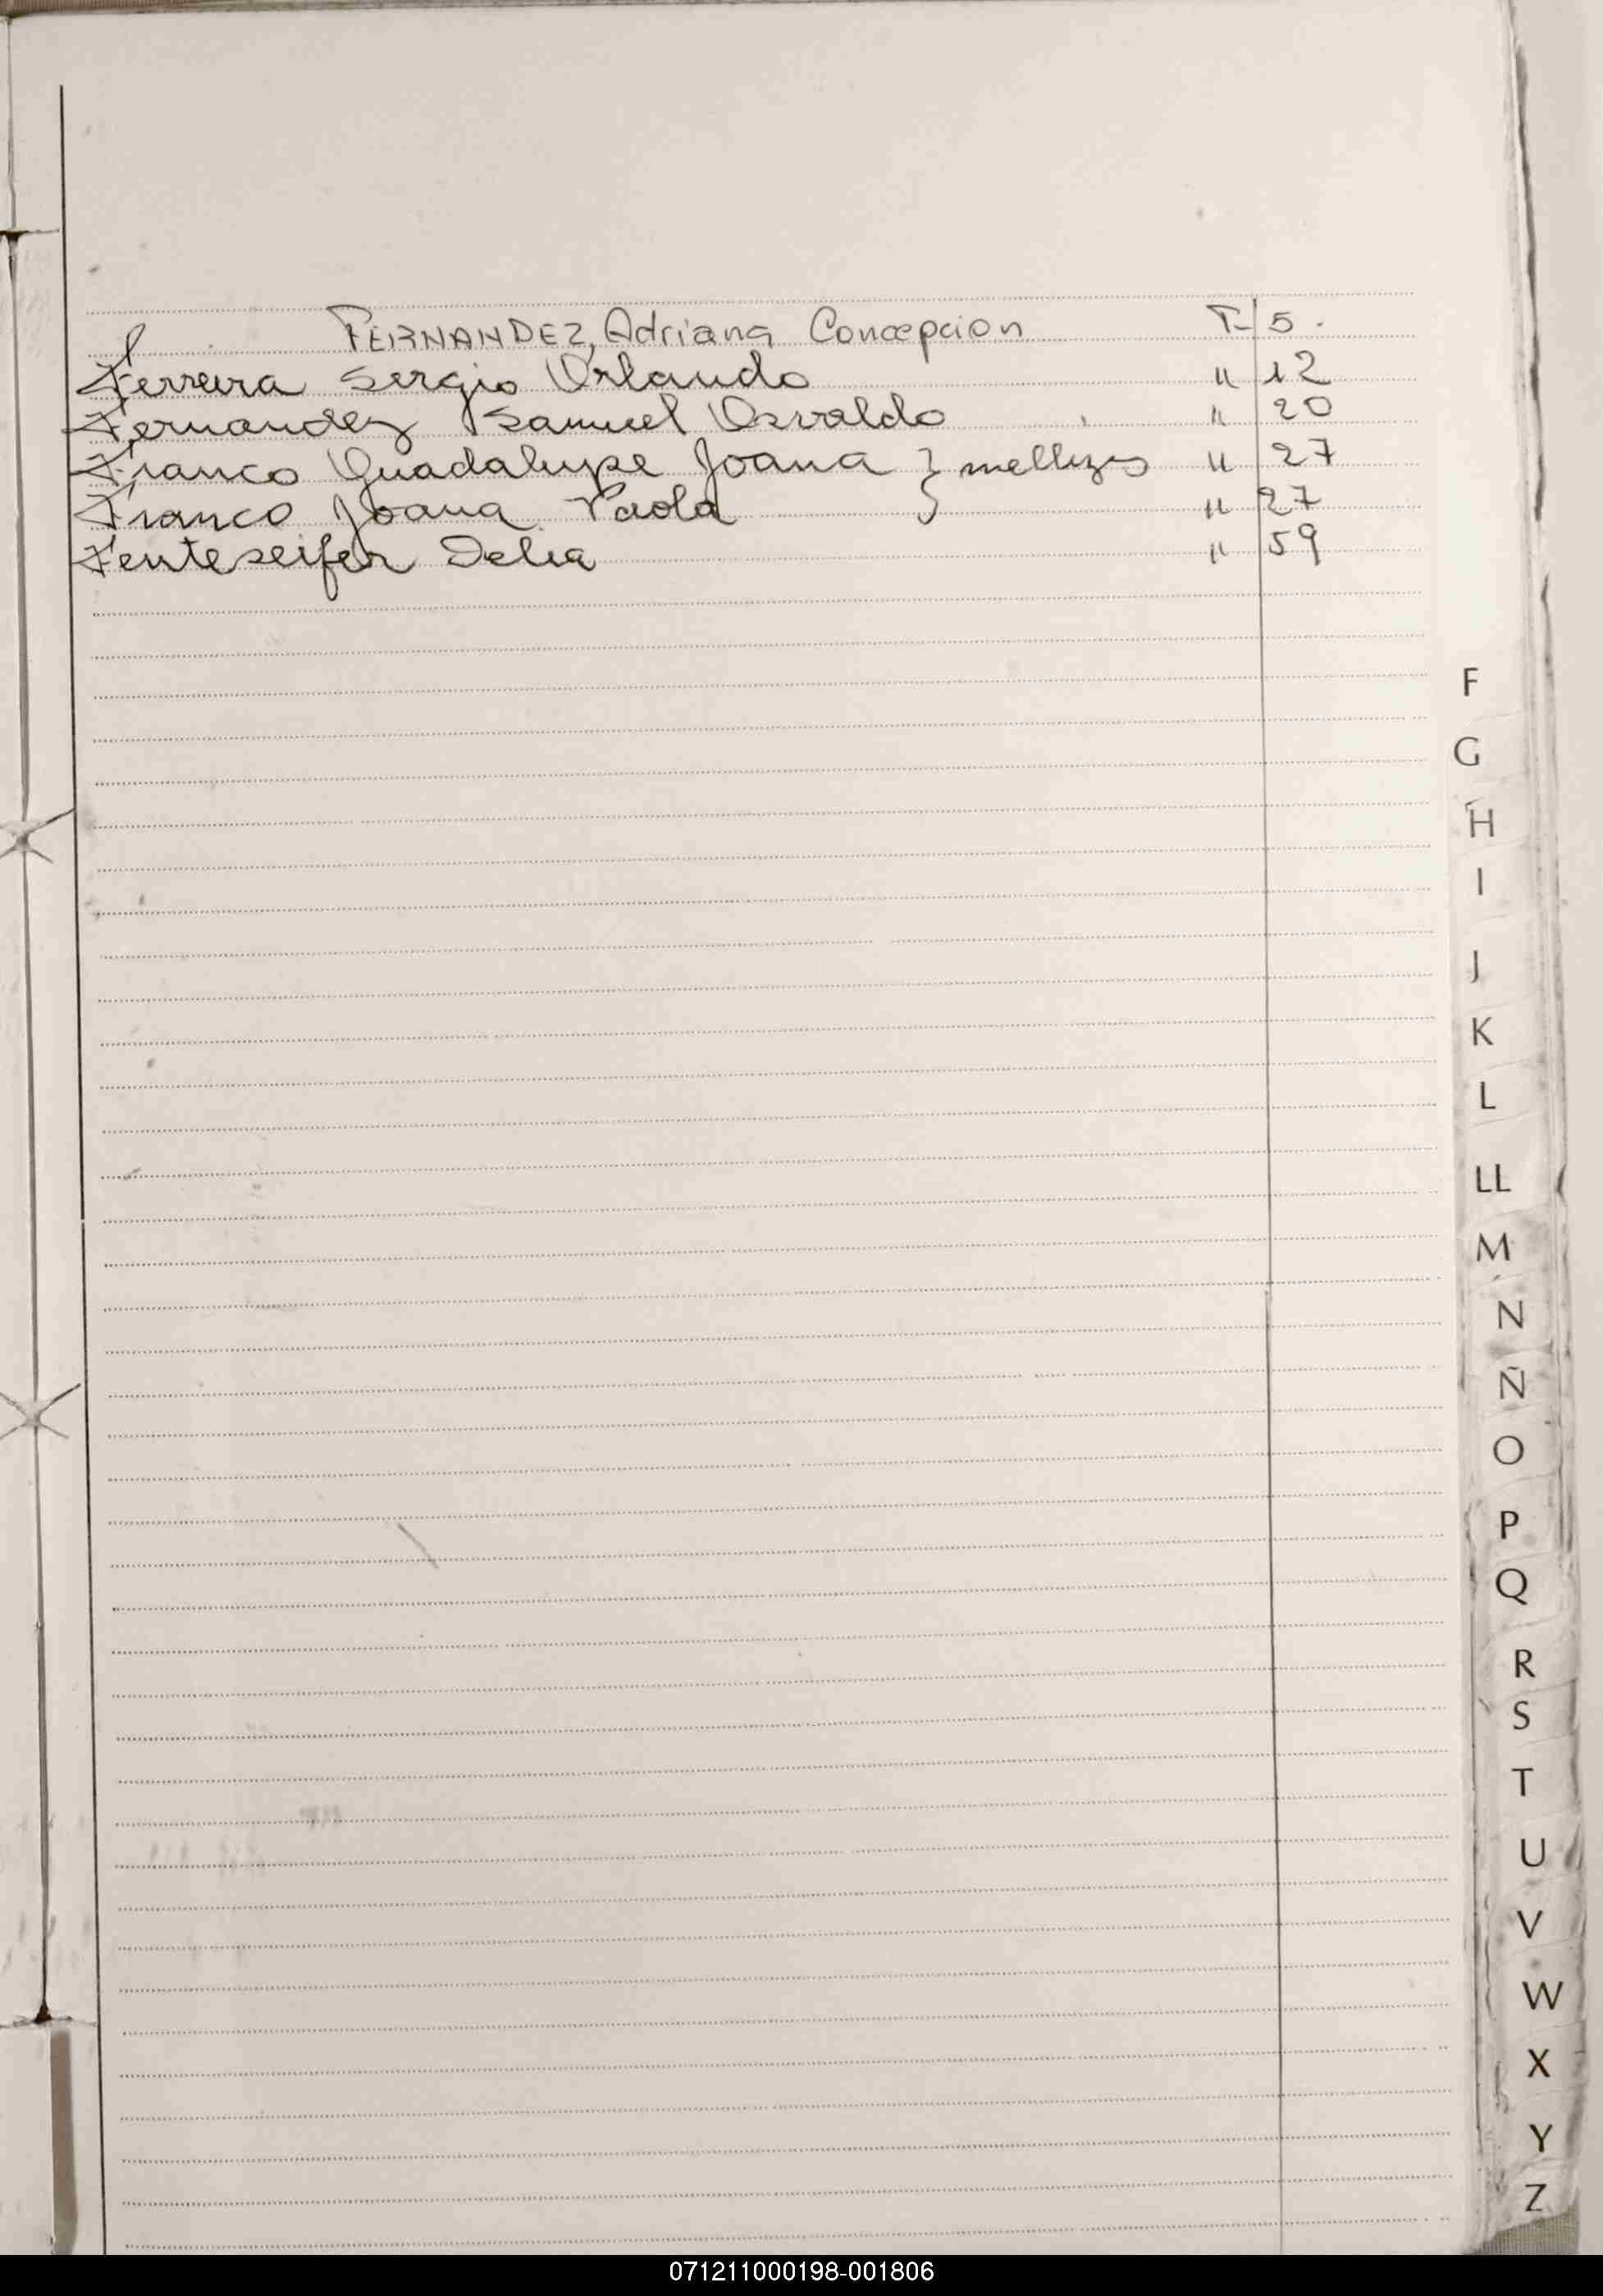 FERNANDEZ, Adriana Concepcion T- 5.
Ferreira Sergio Orlando " 12
Fernandez Samuel Osvaldo " 20
Franco Guadalupe Joana } mellizos " 27
Franco Joana Paola } " 27
Fenteseifer Delia " 59
F
G
H
I
J
K
L
LL
M
N
Ñ
O
P
Q
R
S
T
U
V
W
X
Y
Z
071211000198-001806